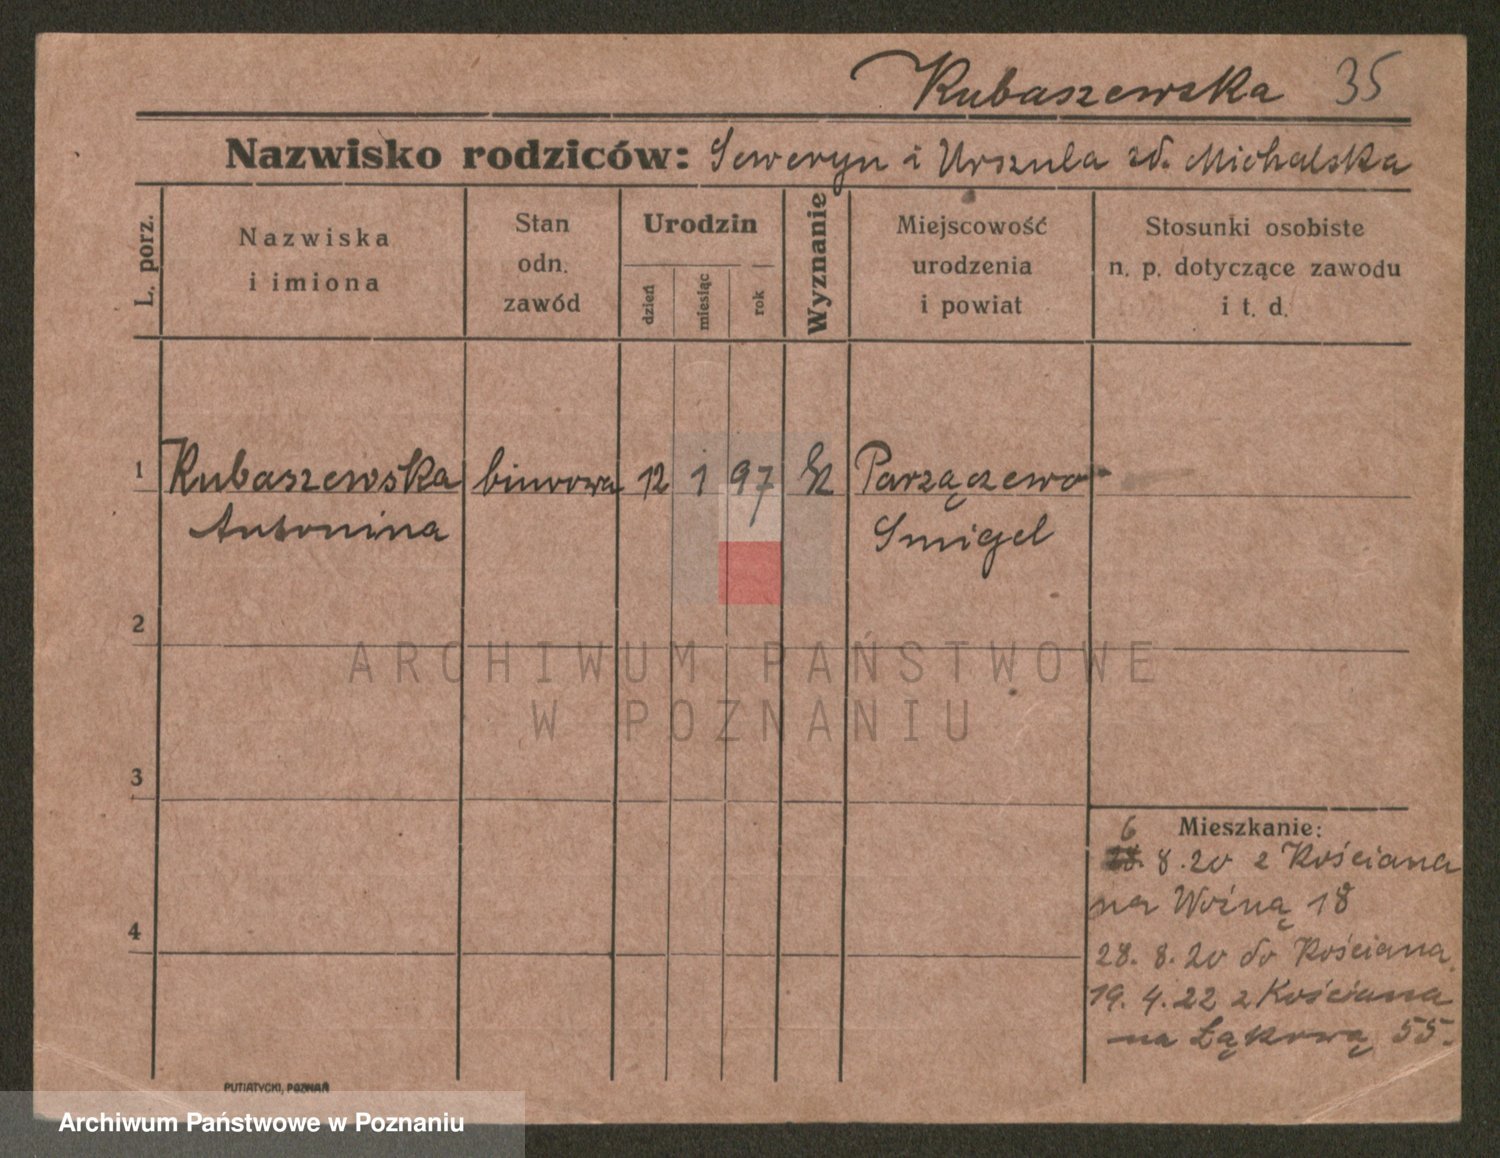 Kubaszewska 35
Nazwisko rodziców: Seweryn i Urszula zd. Michalska
L. porz.
Nazwiska
i imiona
Stan
odn.
zawód
Urodzin
dzień
miesiąc
rok
Wyznanie
Miejscowość
urodzenia
i powiat
Stosunki osobiste
n. p. dotyczące zawodu
i t. d.
1 Kubaszewska biurowa 12 1 97 Parzączewo
Antonina Smigel
2
ARCHIWUM PAŃSTWOWE
W POZNANIU
3
Mieszkanie:
6
8.20 z Kościana
na Woźną 18
4
28. 8. 20 do Kościana
19. 4. 22 z Kościana
na Łąkową 55.
PUTIATYCKI, POZNAŃ
Archiwum Państwowe w Poznaniu